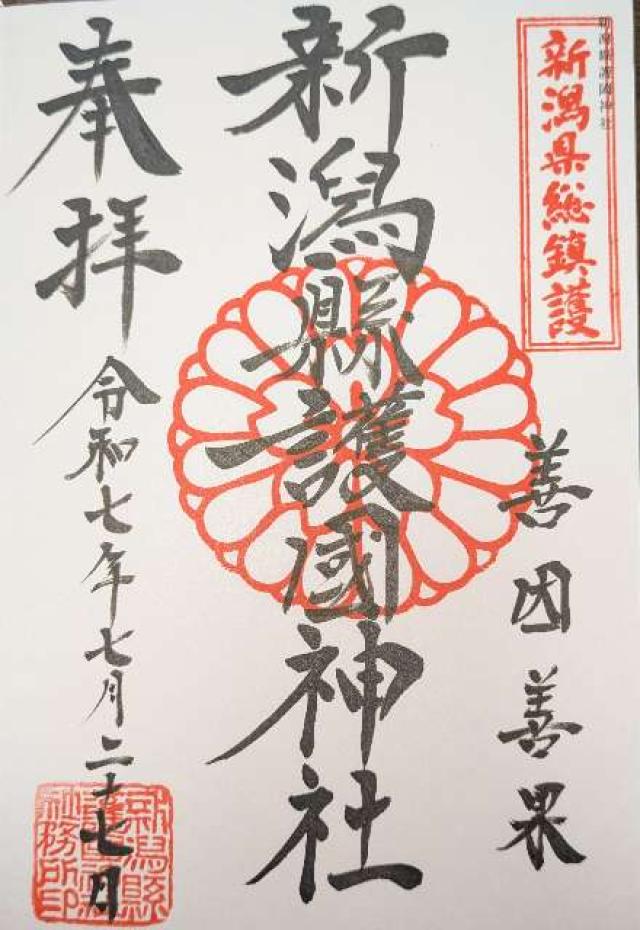 新潟縣護國神社
新潟県総鎮護
善因善果
新潟縣護國神社
奉拝
令和七年七月二十七日
新潟縣
護國神社
社務所印